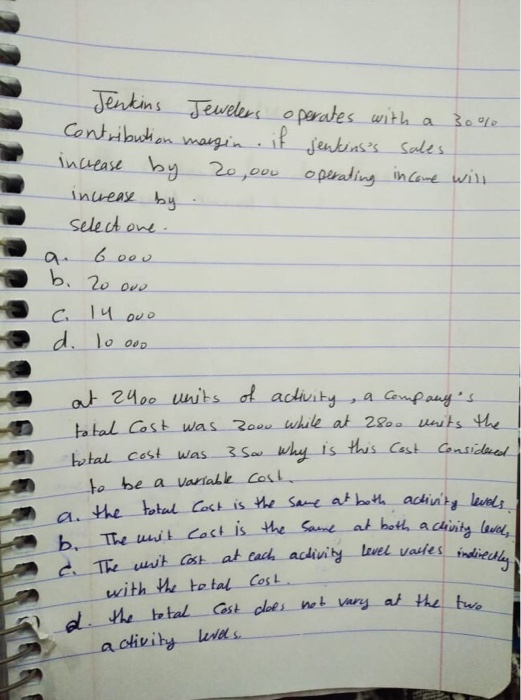 Jenkins Jewelers operates with a 30%
Contribution margin. if jenkins's sales
increase by 20,000 operating income will
increase by .
select one.
a. 6 000
b. 20 000
c. 14 000
d. 10 000
at 2400 units of activity, a company's
total cost was 3000 while at 2800 units the
total cost was 3500 why is this cost considered
to be a variable cost.
a. the total cost is the same at both activity levels.
b. The unit cost is the same at both activity levels,
c. The unit cost at each activity level varies indirectly
with the total cost.
d. the total cost does not vary at the two
activity levels.